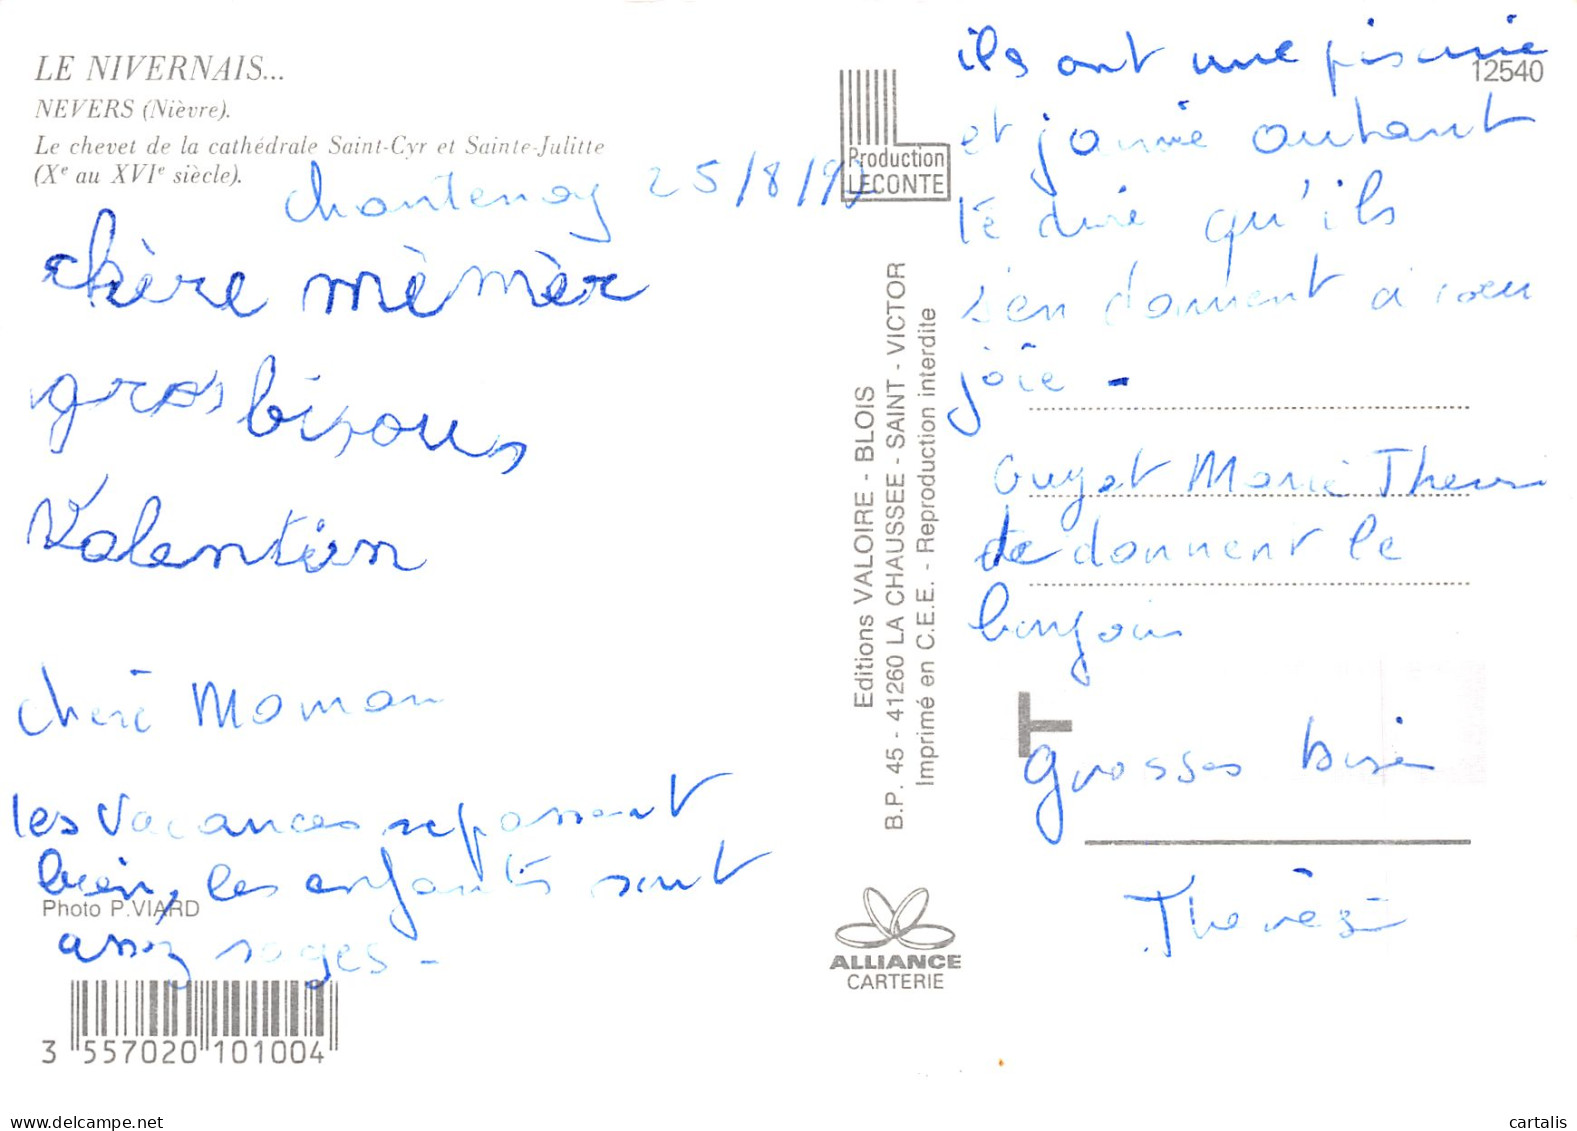 LE NIVERNAIS...
NEVERS (Nièvre).
Le chevet de la cathédrale Saint-Cyr et Sainte-Julitte
(Xe au XVIe siècle).
Chantenay 25/8/92
chère mèmèr
gros bisous
Valentin
chère Maman
les vacances se passent
bien, les enfants sont
assez sages -
Photo P.VIARD
3 557020 101004
Production
LECONTE
Editions VALOIRE - BLOIS
B.P. 45 - 41260 LA CHAUSSEE - SAINT - VICTOR
Imprimé en C.E.E. - Reproduction interdite
ALLIANCE
CARTERIE
12540
ils ont une piscine
et autant
te dire qu'ils
s'en donnent à coeu
joie -
Guyot Marie Therese
te donnent le
bonjour
T
grosses bises
Thérèse